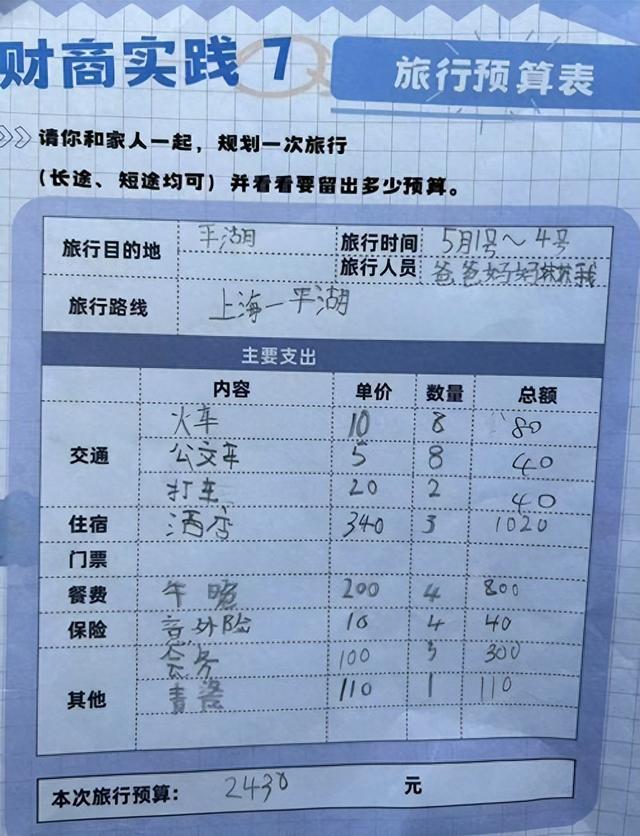 财商实践 7
旅行预算表
请你和家人一起，规划一次旅行
（长途、短途均可）并看看要留出多少预算。
旅行目的地 平湖 旅行时间 5月1号～4号
旅行人员 爸爸妈妈妹妹我
旅行路线 上海—平湖
主要支出
内容 单价 数量 总额
交通 火车 10 8 80
公交车 5 8 40
打车 20 2 40
住宿 酒店 340 3 1020
门票
餐费 午 晚 200 4 800
保险 意外险 10 4 40
其他 100 3 300
110 1 110
本次旅行预算： 2430 元